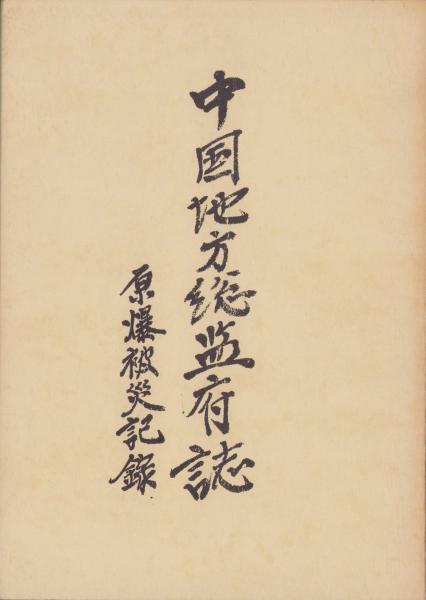 中国地方総监府誌
原爆被災記録